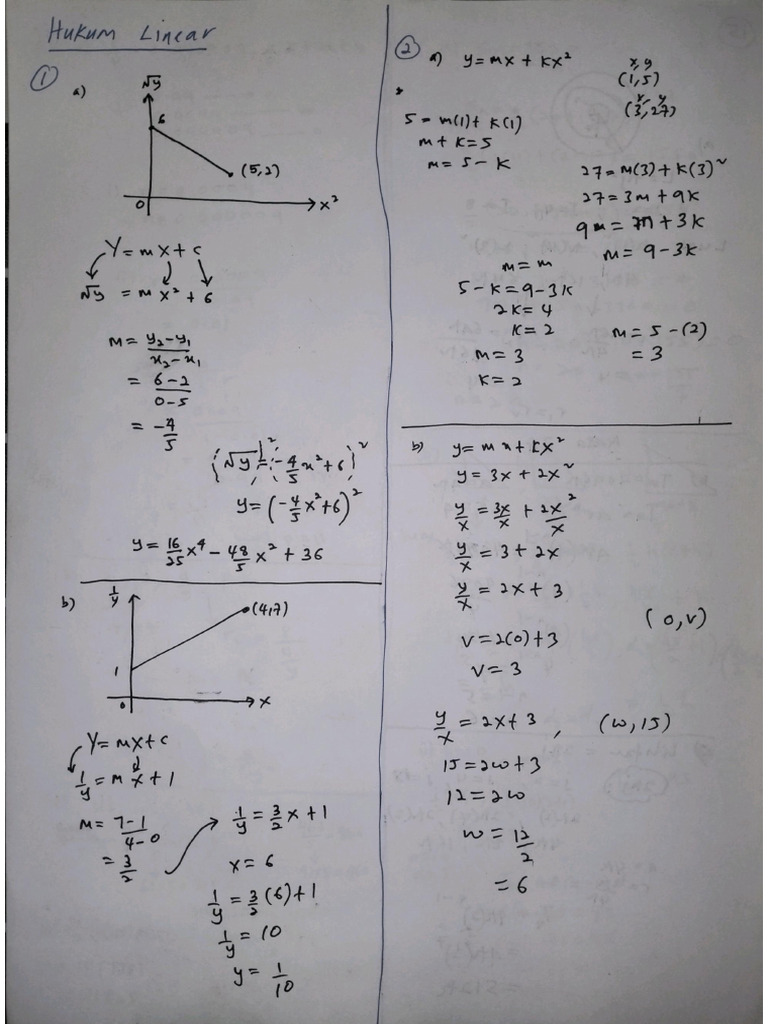 Hukum Linear
①
a)
√y
6
(5,2)
0
x²
Y = mX + c
√y = m x² + 6
m = y₂-y₁/x₂-x₁
= 6-2/0-5
= -4/5
(√y)² = (-4/5 x² + 6)²
y = (-4/5 x² + 6)²
y = 16/25 x⁴ - 48/5 x² + 36
b)
1/y
(4,7)
1
0
x
Y = mX + c
1/y = m x + 1
m = 7-1/4-0
= 3/2
1/y = 3/2 x + 1
x = 6
1/y = 3/2 (6) + 1
1/y = 10
y = 1/10
②
a) y = mx + kx²
x, y
(1,5)
x y
(3,27)
5 = m(1) + k(1)
m + k = 5
m = 5 - k
27 = m(3) + k(3)²
27 = 3m + 9k
9 = m + 3k
m = 9 - 3k
m = m
5 - k = 9 - 3k
2k = 4
k = 2
m = 5 - (2)
= 3
m = 3
k = 2
b) y = mx + kx²
y = 3x + 2x²
y/x = 3x/x + 2x²/x
y/x = 3 + 2x
y/x = 2x + 3
(0,v)
v = 2(0) + 3
v = 3
y/x = 2x + 3, (w,15)
15 = 2w + 3
12 = 2w
w = 12/2
= 6